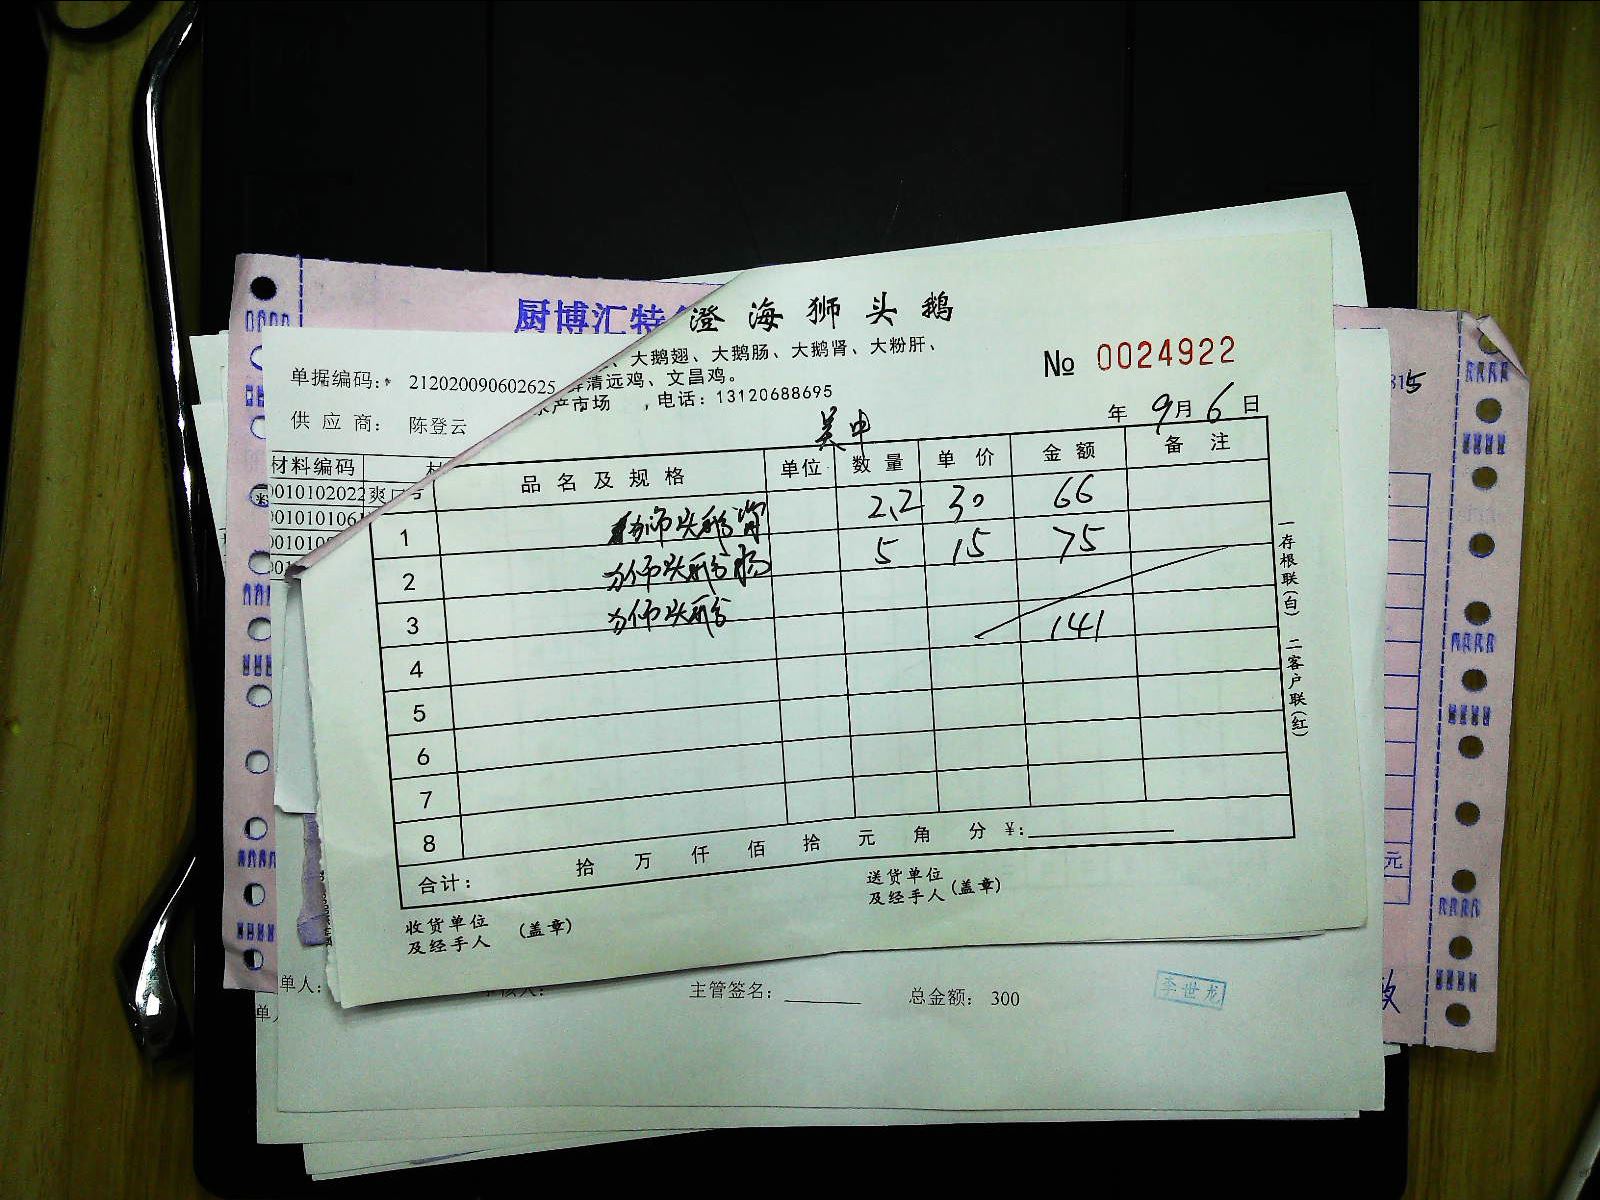 厨博汇特
澄海狮头鹅
、大鹅翅、大鹅肠、大鹅肾、大粉肝、
清远鸡、文昌鸡。
产市场 ,电话:13120688695
№ 0024922
单据编码: 212020090602625
供 应 商: 陈登云
年 9月 6日
吴中
材料编码
0010102022 爽口
001010106
品名及规格 单位 数量 单价 金额 备注
1 狮头鹅肾 2.2 30 66
2 狮头鹅肠 5 15 75
3 狮头鹅
141
4
5
6
7
8
合计: 拾 万 仟 佰 拾 元 角 分 ¥:
收货单位
及经手人 (盖章)
送货单位
及经手人 (盖章)
一存根联(白) 二客户联(红)
单人:
主管签名:
总金额: 300
李世龙
元